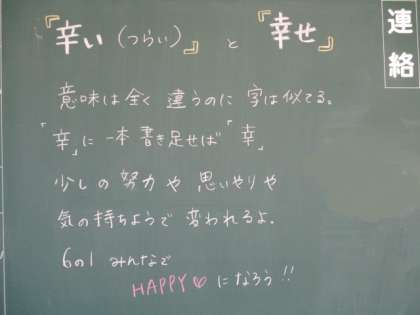 『辛い（つらい）』と『幸せ』
連絡
意味は全く違うのに字は似てる。
「辛」に一本書き足せば「幸」
少しの努力や思いやりや
気の持ちようで変われるよ.
6の1 みんなで
HAPPY♡になろう!!